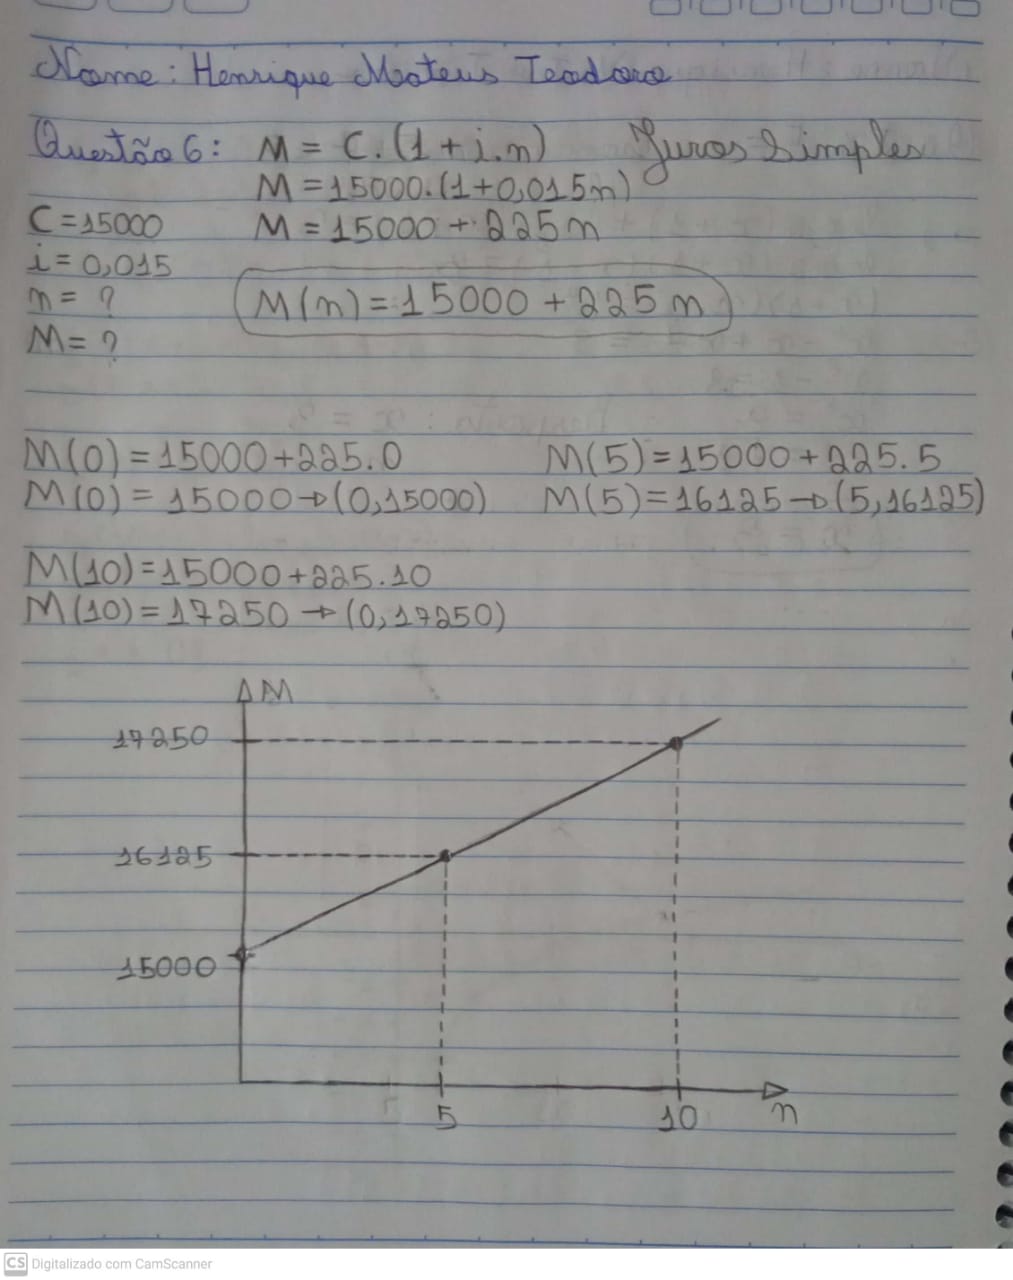 Nome: Henrique Mateus Teodoro
Questão 6: M = C.(1+i.n) Juros Simples
M = 15000.(1+0,015n)
C = 15000 M = 15000 + 225n
i = 0,015
n = ? M(n) = 15000 + 225n
M = ?
M(0) = 15000+225.0 M(5) = 15000+225.5
M(0) = 15000→(0,15000) M(5) = 16125→(5,16125)
M(10) = 15000+225.10
M(10) = 17250 → (0,17250)
M
17250
16125
15000
5 10 n
CS Digitalizado com CamScanner